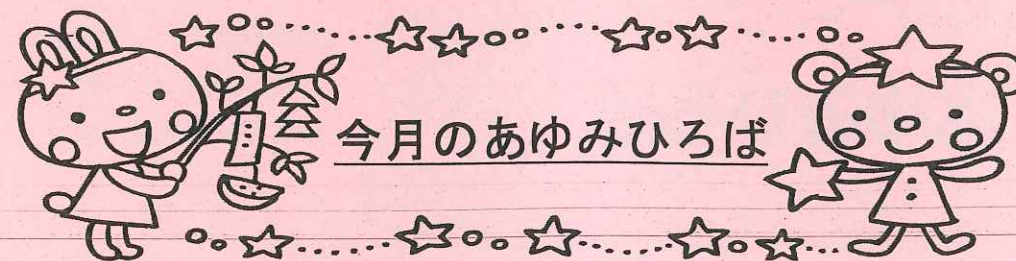 今月のあゆみひろば